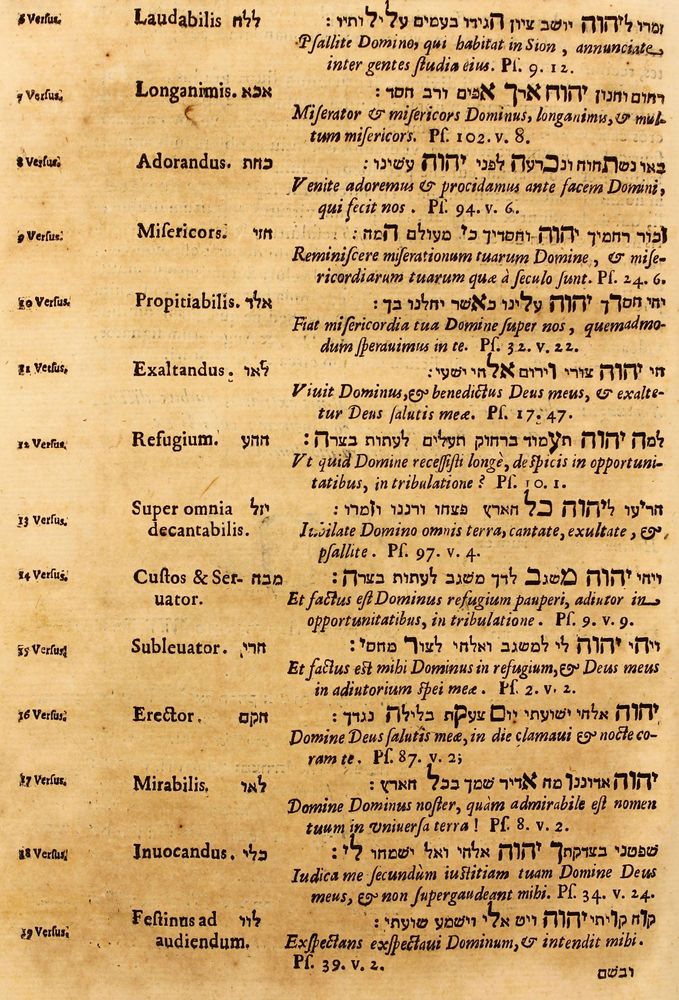 6 Versus. Laudabilis ללה זמרו ליהוה יושב ציון הגידו בעמים עלילותיו :
Psallite Domino, qui habitat in Sion, annunciate
inter gentes studia eius. Ps. 9. 12.
7 Versus. Longanimis. אכא רחום וחנון יהוה ארך אפים ורב חסד :
Miserator & misericors Dominus, longanimus, & mul-
tum misericors. Ps. 102. v. 8.
8 Versus. Adorandus. כהת באו נשתחוה ונכרעה לפני יהוה עשינו :
Venite adoremus & procidamus ante faciem Domini,
qui fecit nos. Ps. 94. v. 6.
9 Versus. Misericors. הזי זכור רחמיך יהוה וחסדיך כי מעולם המה :
Reminiscere miserationum tuarum Domine, & mise-
ricordiarum tuarum quæ à seculo sunt. Ps. 24. 6.
10 Versus. Propitiabilis. אלד יהי חסדך יהוה עלינו כאשר יחלנו בך :
Fiat misericordia tua Domine super nos, quemadmo-
dum sperauimus in te. Ps. 32. v. 22.
11 Versus. Exaltandus. לאו חי יהוה צורי וירום אלהי ישעי :
Viuit Dominus, & benedictus Deus meus, & exalte-
tur Deus salutis meæ. Ps. 17. 47.
12 Versus. Refugium. ההע למה יהוה תעמוד ברחוק תעלים לעתות בצרה :
Vt quid Domine recessisti longè, despicis in opportuni-
tatibus, in tribulatione? Ps. 10. 1.
13 Versus. Super omnia יזל הריעו ליהוה כל הארץ פצחו ורננו וזמרו :
decantabilis. Iubilate Domino omnis terra, cantate, exultate, &
psallite. Ps. 97. v. 4.
14 Versus. Custos & Ser- מבה ויהי יהוה משגב לדך משגב לעתות בצרה :
uator. Et factus est Dominus refugium pauperi, adiutor in
opportunitatibus, in tribulatione. Ps. 9. v. 9.
15 Versus. Subleuator. הרי ויהי יהוה לי למשגב ואלהי לצור מחסי :
Et factus est mihi Dominus in refugium, & Deus meus
in adiutorium spei meæ. Ps. 2. v. 2.
16 Versus. Erector. הקם יהוה אלהי ישועתי יום צעקתי בלילה נגדך :
Domine Deus salutis meæ, in die clamaui & nocte co-
ram te. Ps. 87. v. 2;
17 Versus. Mirabilis. לאו יהוה אדוננו מה אדיר שמך בכל הארץ :
Domine Dominus noster, quàm admirabile est nomen
tuum in vniuersa terra! Ps. 8. v. 2.
18 Versus. Inuocandus. כלי שפטני בצדקתך יהוה אלהי ואל ישמחו לי :
Iudica me secundùm iustitiam tuam Domine Deus
meus, & non supergaudeant mihi. Ps. 34. v. 24.
19 Versus. Festinus ad לוו קוה קויתי יהוה ויט אלי וישמע שועתי :
audiendum. Exspectans exspectaui Dominum, & intendit mihi.
Ps. 39. v. 2.
ובשם